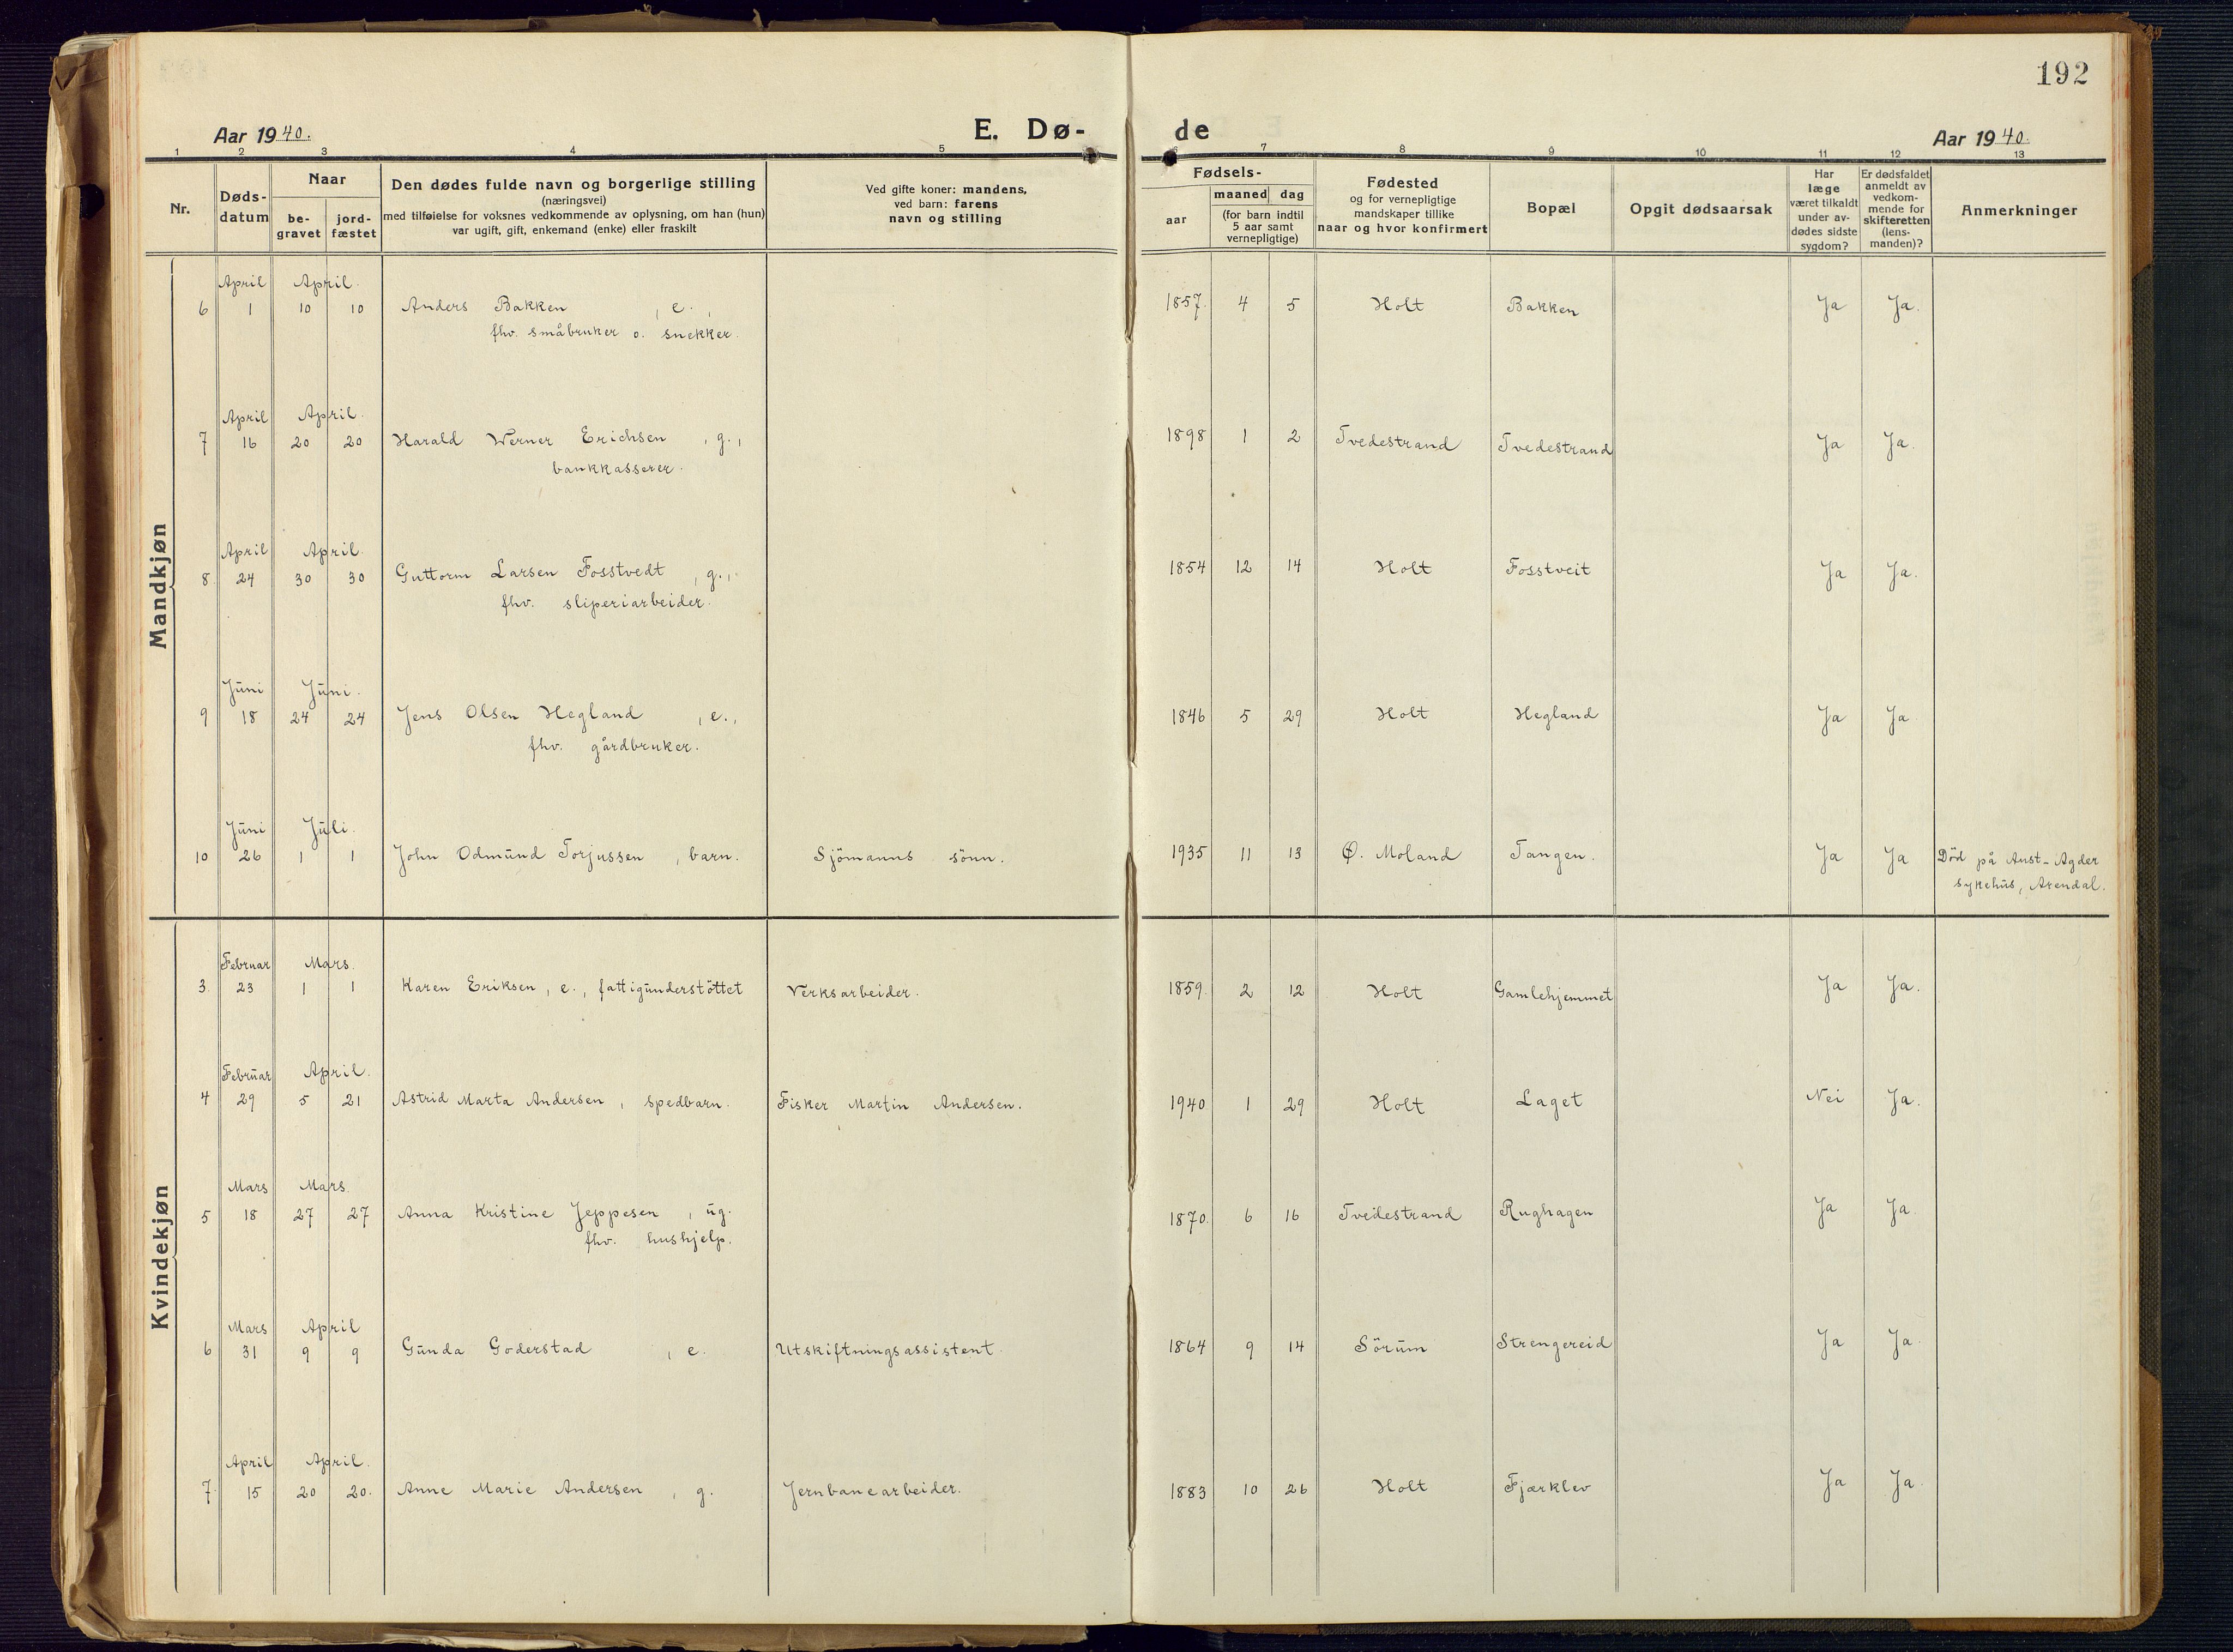 192
Aar 1940.
E. Dø-
de
Aar 1940.
1 2 3 4 5 6 7 8 9 10 11 12 13
Nr.
Døds-
datum
Naar
be-
gravet
jord-
fæstet
Den dødes fulde navn og borgerlige stilling
(næringsvei)
med tilføielse for voksnes vedkommende av oplysning, om han (hun)
var ugift, gift, enkemand (enke) eller fraskilt
Ved gifte koner: mandens,
ved barn: farens
navn og stilling
Fødsels-
aar
maaned dag
(for barn indtil
5 aar samt
vernepligtige)
Fødested
og for vernepligtige
mandskaper tillike
naar og hvor konfirmert
Bopæl
Opgit dødsaarsak
Har
læge
været tilkaldt
under av-
dødes sidste
sygdom?
Er dødsfaldet
anmeldt av
vedkom-
mende for
skifteretten
(lens-
manden)?
Anmerkninger
Mandkjøn
April April.
6 1 10 10 Anders Bakken, e., 1857. 4 5 Holt Bakken Ja Ja.
fhv. småbruker o. snekker.
April April.
7 16 20 20 Harald Werner Erichsen, g., 1898 1 2 Tvedestrand Tvedestrand Ja Ja.
bankkasserer.
April April.
8. 24 30 30 Guttorm Larsen Fosstvedt, g., 1854 12 14 Holt Fosstveit Ja Ja.
fhv. sliperiarbeider.
Juni Juni.
9 18 24 24 Jens Olsen Hegland, e., 1846 5 29 Holt Hegland Ja Ja
fhv. gårdbruker.
Juni Juli.
10 26 1 1 John Odmund Torjussen, barn. Sjömanns sönn. 1935 11 13 Ø. Moland Tangen. Ja Ja Död på Aust-Agder
sykehus, Arendal.
Kvindekjøn
Februar Mars.
3. 23 1 1 Karen Eriksen, e., fattigunderstöttet Verksarbeider. 1859. 2 12 Holt Gamlehjemmet Ja Ja.
Februar April.
4 29 5 21 Astrid Marta Andersen, spedbarn. Fisker Martin Andersen. 1940 1 29 Holt Laget Nei Ja.
Mars Mars.
5 18 27 27 Anna Kristine Jeppesen, ug. 1870. 6 16 Tvedestrand Rughagen Ja Ja.
fhv. hushjelp.
Mars April
6 31 9 9 Gunda Goderstad, e. Utskiftningsassistent. 1864 9 14 Sörum Strengereid Ja Ja.
April April.
7. 15 20 20. Anne Marie Andersen, g. Jernbanearbeider. 1883 10 26 Holt Fjærklev Ja Ja.